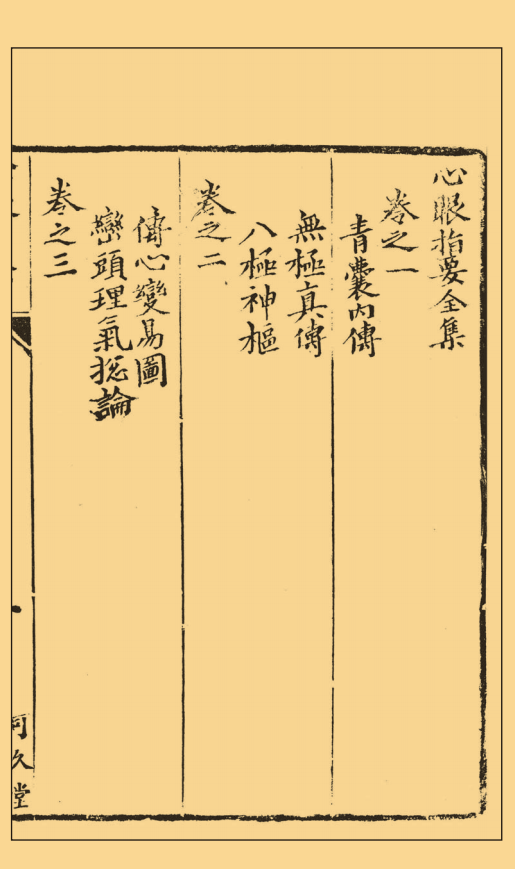 心眼指要全集
卷之一
青囊內傳
無極真傳
八極神樞
卷之二
傳心變易圖
巒頭理氣総論
卷之三
同久堂